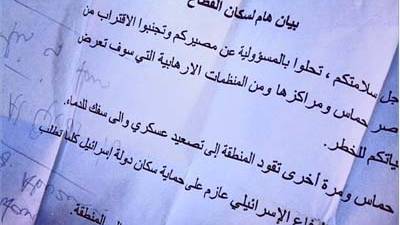 بيان هام لسكان القطاع
جل سلامتكم ، تحلوا بالمسؤولية عن مصيركم وتجنبوا الاقتراب من
صر حماس ومراكزها ومن المنظمات الارهابية التي سوف تعرض
ياتكم للخطر.
حماس ومرة أخرى تقود المنطقة إلى تصعيد عسكري والى سفك للدماء.
فاع الإسرائيلي عازم على حماية سكان دولة إسرائيل كلما تطلب
المنطقة.